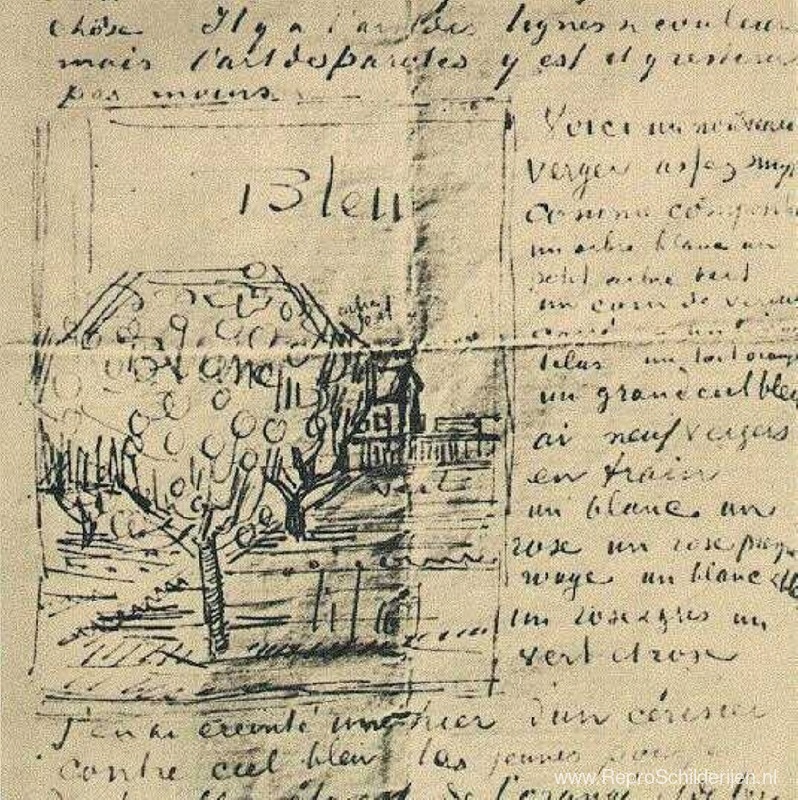 chose Il y a l'art des lignes & couleur
mais l'art des paroles y est et y restera
pas moins.
Bleu
blanc
vert
Voici un nouveau
verger assez simp
comme composit
un arbre blanc un
petit arbre vert
un coin de verdu
carré – un
lilas un toit orang
un grand ciel bleu
ai neuf vergers
en train
un blanc un
rose un rose presq
rouge un blanc et
un rose & gris un
vert et rose
J'en ai éreinté un hier d'un cérisier
contre ciel bleu les jeunes
de l'orangé
www.ReproSchilderijen.nl